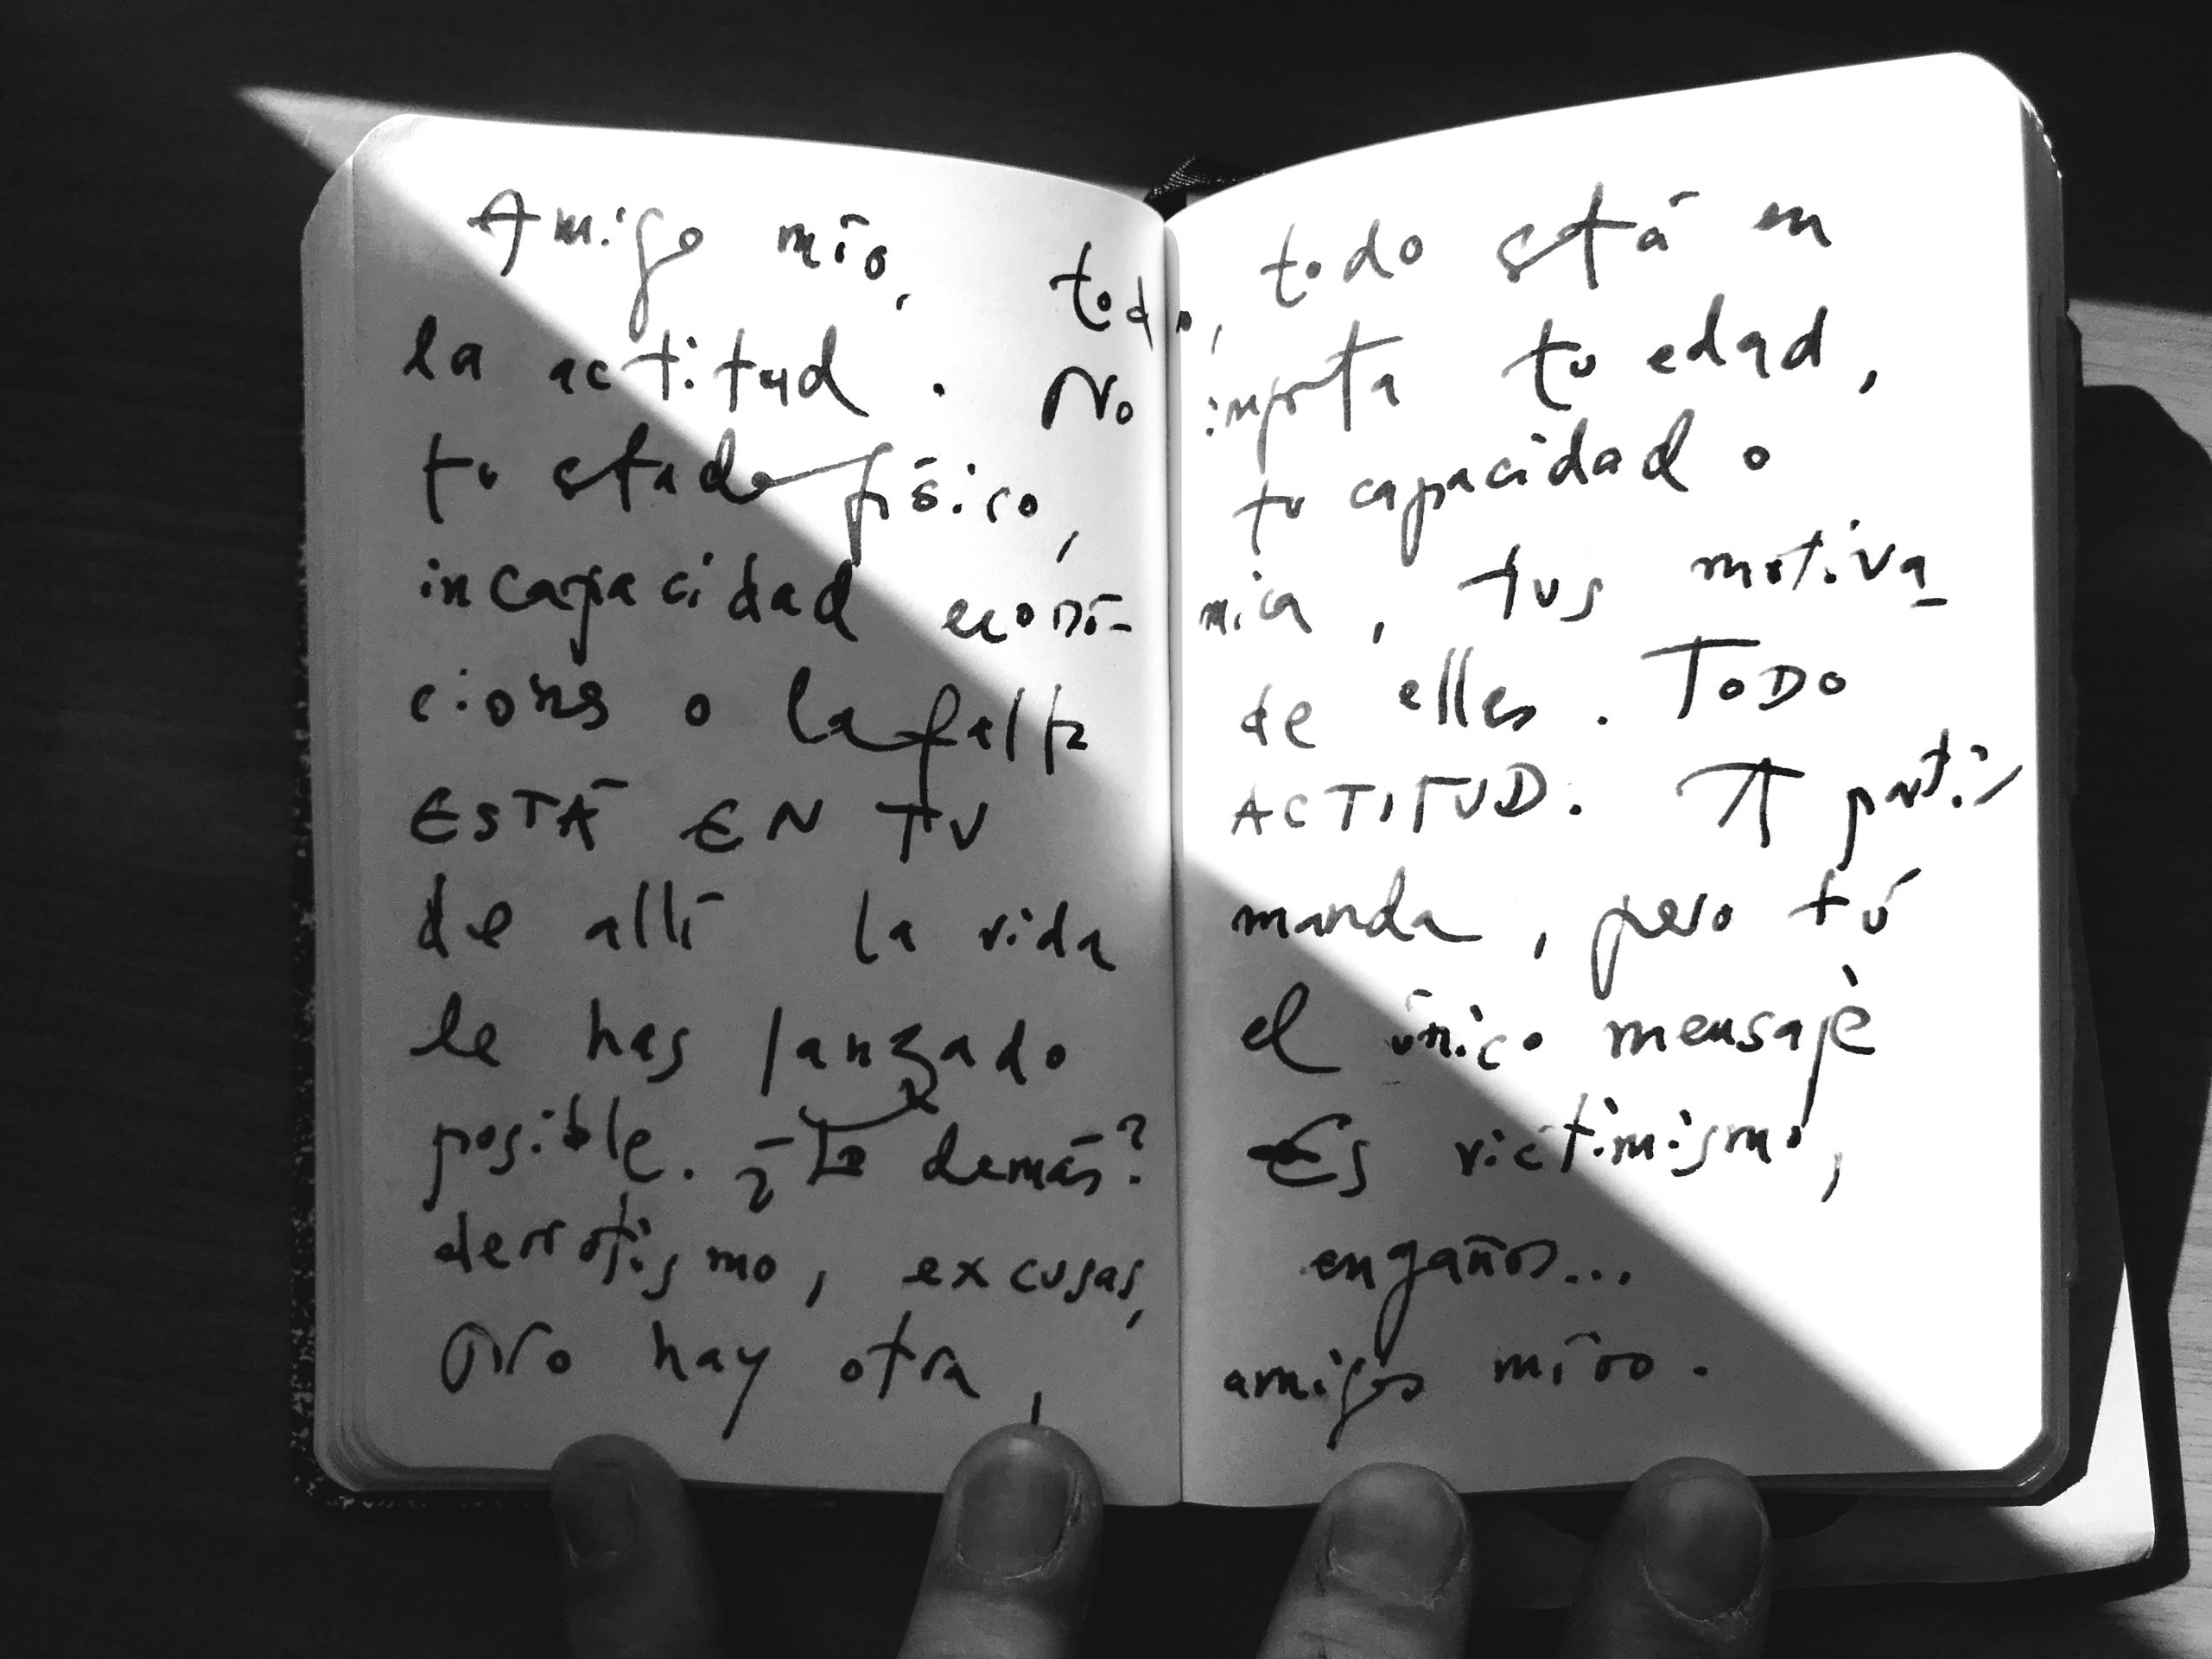 Amigo mío, todo, todo está en
la actitud. No importa tu edad,
tu estado físico, tu capacidad o
incapacidad econó-mica, tus motiva-
ciones o la falta de ellas. TODO
ESTÁ EN TU ACTITUD. A partir
de allí la vida manda, pero tú
le has lanzado el único mensaje
posible. ¿Lo demás? Es victimismo,
derrotismo, excusas, engaños...
No hay otra, amigos míos.